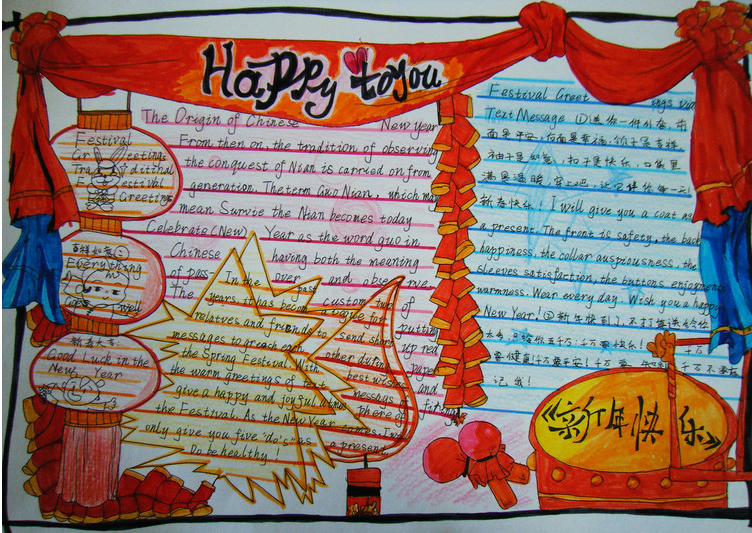 Happy to you
The Origin of Chinese New year
From then on, the tradition of observing
the conquest of Nian is carried on from
generation. The term Guo Nian, which may
mean Survie the Nian becomes today
Celebrate (New) Year as the word guo in
Chinese having both the meaning
of pass- over and observe.
The custom of
putting
up red
paper
and
firing
In the past
years, it has become
relatives and friends to send short
messages to greach each other during
the Spring Festival. With best wishes
the warm greetings of text message
give a happy and joyful atmosphere of
the Festival. As the New Year comes, I
only give you five "do's" as a present.
Do be healthy!
Festival
Greetings
Festival
Greeting
Everything
well
新春大吉:
Good Luck in the
New Year
Festival Greet ings via
Text Message ①送你一件外套,前
面是平安,后面是幸福,领子是吉祥,
袖子是如意,扣子是快乐,口袋里
满是温暖,穿上吧,让它伴你每一天!
新春快乐! I will give you a coat as
a present. The front is safety, the back
happiness, the collar auspiousness, the
sleeves satisfaction, the buttons enjoyment
warmness. Wear every day. Wish you a happy
New Year! ②新年快到了,
千万
要健康!千万要平安!千万要 千万不要忘
记我!
《新年快乐》